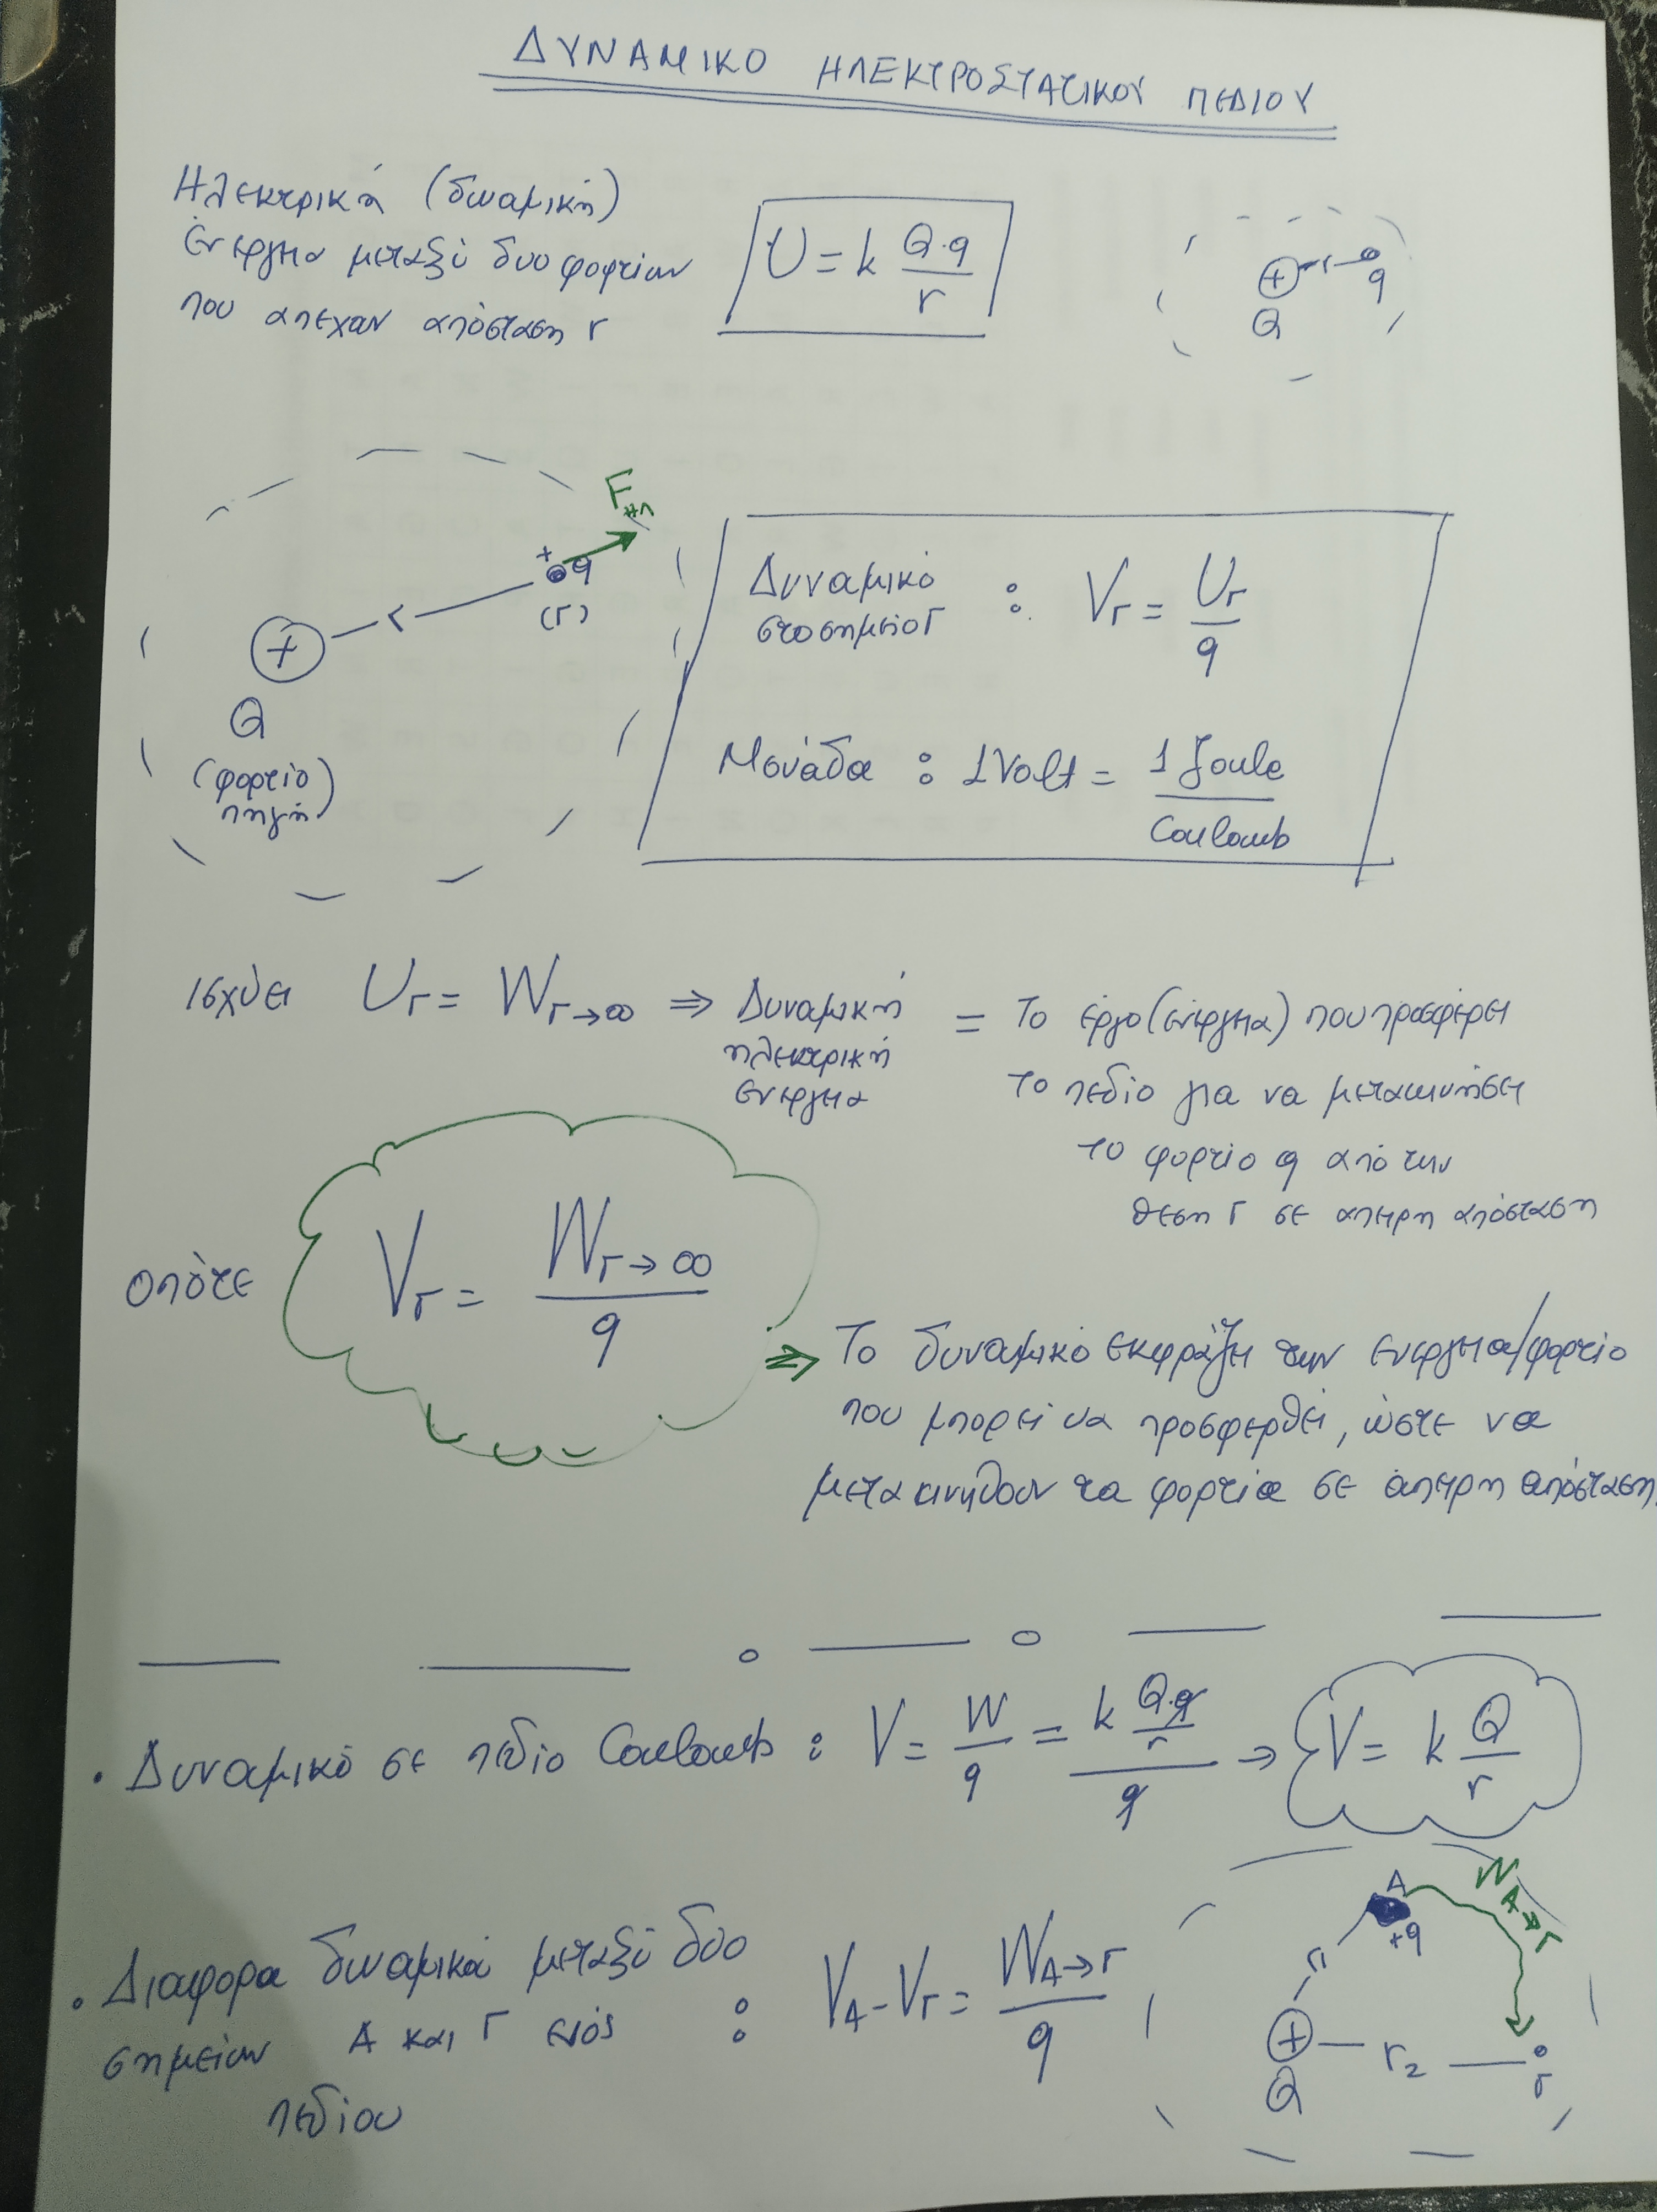 ΔΥΝΑΜΙΚΟ ΗΛΕΚΤΡΟΣΤΑΤΙΚΟΥ ΠΕΔΙΟΥ
Ηλεκτρική (δυναμική)
ενέργεια μεταξύ δυο φορτίων
που απέχουν απόσταση r
U = k Q·q / r
r
q
+
Q
F ηλ
+ q
(Γ)
r
+
Q
(φορτίο
πηγή)
Δυναμικό
στο σημείο Γ : V_Γ = U_Γ / q
Μονάδα : 1 Volt = 1 Joule / Coulomb
ισχύει U_Γ = W_Γ→∞ ⇒ Δυναμική
ηλεκτρική
ενέργεια
= Το έργο (ενέργεια) που προσφέρει
το πεδίο για να μετακινήσει
το φορτίο q από την
θεση Γ σε απειρη απόσταση
οπότε V_Γ = W_Γ→∞ / q
⇒ Το δυναμικό εκφράζει την ενεργεια/φορτίο
που μπορεί να προσφερθεί, ώστε να
μετακινηθουν τα φορτία σε άπειρη απόσταση.
• Δυναμικό σε πεδίο Coulomb : V = W / q = k Q·q / r / q → V = k Q / r
• Διαφορα δυναμικού μεταξύ δύο
σημείων Α και Γ ενός : V_A - V_Γ = W_A→Γ / q
πεδίου
A
W A→Γ
+q
r1
+
Q
r2
Γ